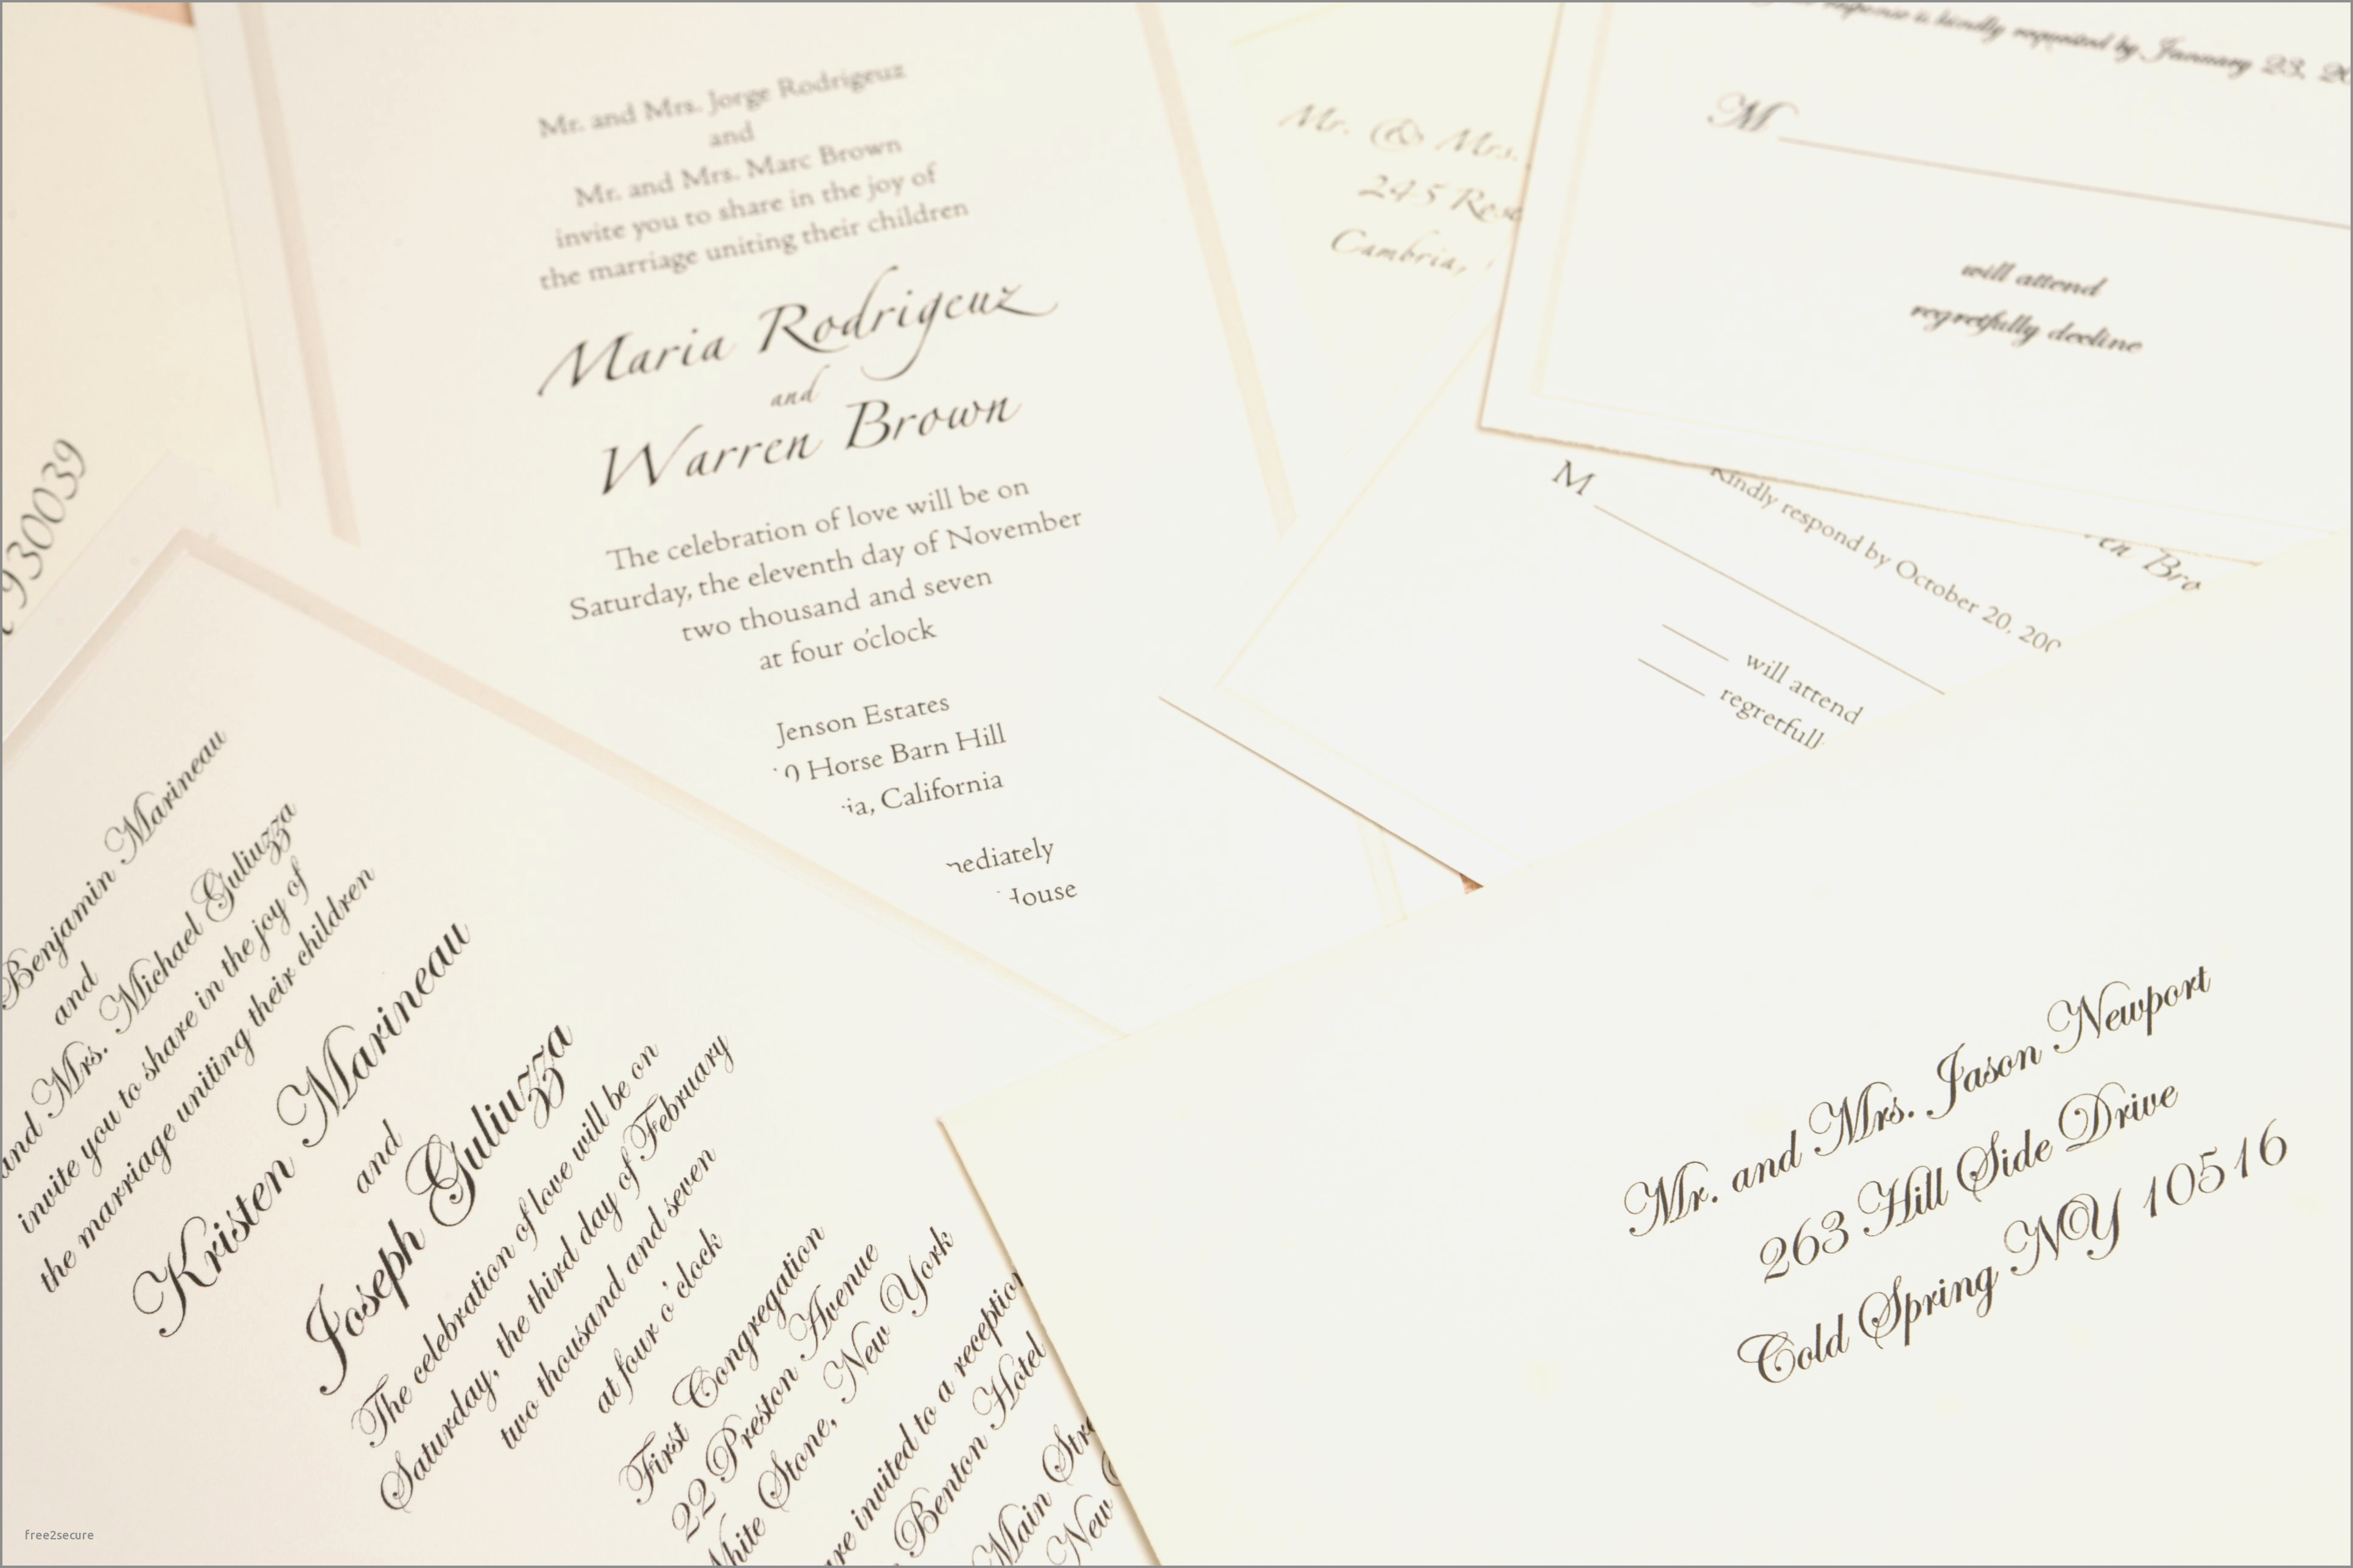 Mr. and Mrs. Jorge Rodrigeuz
and
Mr. and Mrs. Marc Brown
invite you to share in the joy of
the marriage uniting their children
Maria Rodrigeuz
and
Warren Brown
The celebration of love will be on
Saturday, the eleventh day of November
two thousand and seven
at four o'clock
Jenson Estates
0 Horse Barn Hill
California
House
Mr. & Mrs.
245
Cambria,
response is kindly requested by January 23,
M
will attend
regretfully decline
M
Kindly respond by October 20,
will attend
930039
Benjamin Marineau
and
and Mrs. Michael Guliuzza
invite you to share in the joy of
the marriage uniting their children
Kristen Marineau
and
Joseph Guliuzza
The celebration of love will be on
Saturday, the third day of February
two thousand and seven
at four o'clock
First Congregation
22 Preston Avenue
Stone, New York
invited to a reception
Benton Hotel
Main
New
Mr. and Mrs. Jason Newport
263 Hill Side Drive
Cold Spring NY 10516
free2secure